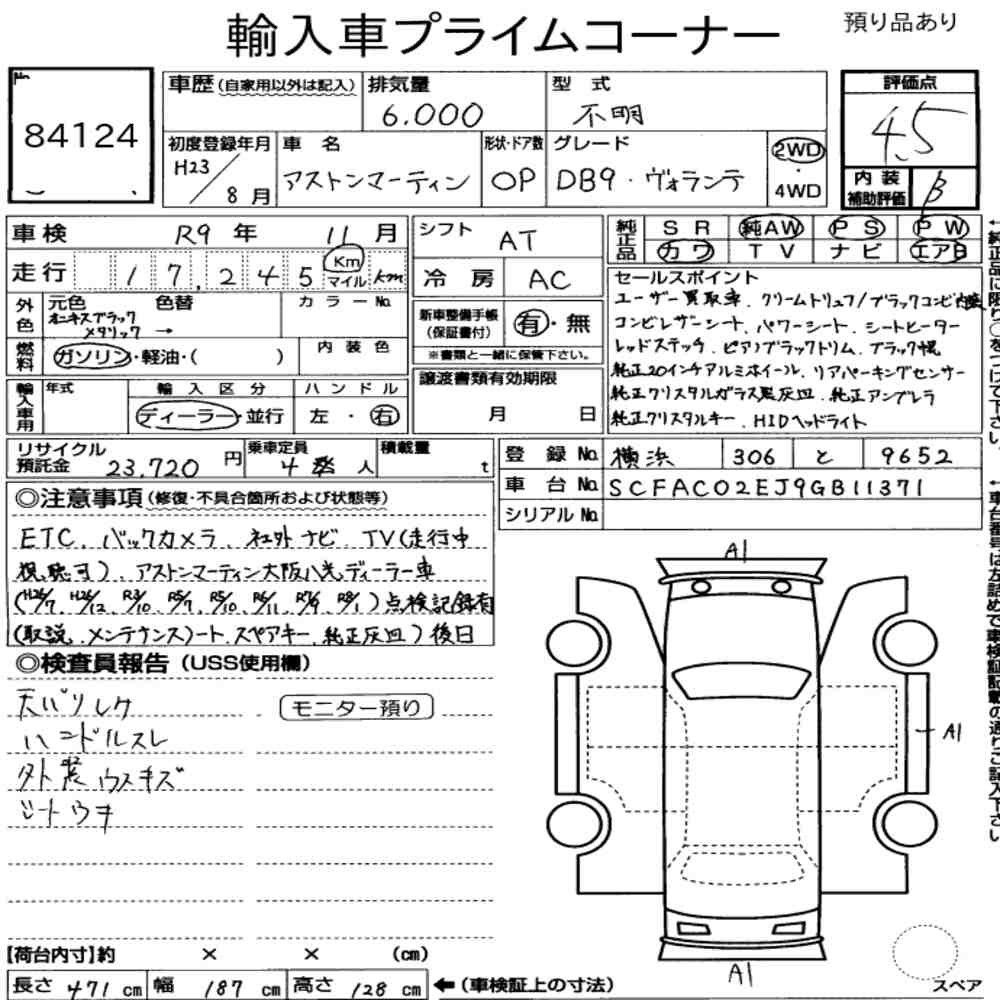 輸入車プライムコーナー
預り品あり
No.
84124
車歴(自家用以外は記入)
排気量
6.000
型 式
不明
評価点
4.5
初度登録年月
H23/8月
車 名
アストンマーティン
形状・ドア数
OP
グレード
DB9・ヴォランテ
2WD
・
4WD
内 装
補助評価
B
車検 R9年 11月
シフト AT
純正品
SR 純AW PS PW
カワ TV ナビ エアB
走行 17,245 Km マイル km
冷 房 AC
セールスポイント
ユーザー買取車、クリームトリュフ/ブラックコンビ内装
コンビレザーシート、パワーシート、シートヒーター
レッドステッチ、ピアノブラックトリム、ブラック幌
純正20インチアルミホイール、リアパーキングセンサー
純正クリスタルガラス黒灰皿、純正アンブレラ
純正クリスタルキー、HIDヘッドライト
外色
元色 色替 カラーNo.
オニキスブラック
メタリック →
新車整備手帳
(保証書付)
有・無
※書類と一緒に保管下さい。
燃料
ガソリン・軽油・( )
内 装 色
輸入車用
年式
輸 入 区 分
ディーラー・並行
ハ ン ド ル
左 ・ 右
譲渡書類有効期限
月 日
リサイクル
預託金 23,720 円
乗車定員
4 人
積載量
t
登 録 No. 横浜 306 と 9652
車 台 No. SCFAC02EJ9GB11371
シリアル No.
◎注意事項(修復・不具合箇所および状態等)
ETC、バックカメラ、社外ナビ、TV(走行中
視聴可)、アストンマーティン大阪八光ディーラー車
(H26/7、H26/12、R3/10、R5/7、R5/10、R6/11、R7/9、R8/1)点検記録有
(取説、メンテナンスノート、スペアキー、純正灰皿)後日
◎検査員報告(USS使用欄)
天バリレク
モニター預り
ハンドルスレ
外装ウスキズ
シートウキ
A1
A1
A1
スペア
【荷台内寸】約 × × (cm)
長さ 471 cm 幅 187 cm 高さ 128 cm ←(車検証上の寸法)
←純正品に限り○をつけて下さい。
←車台番号は左詰めで車検証記載の通りご記入下さい